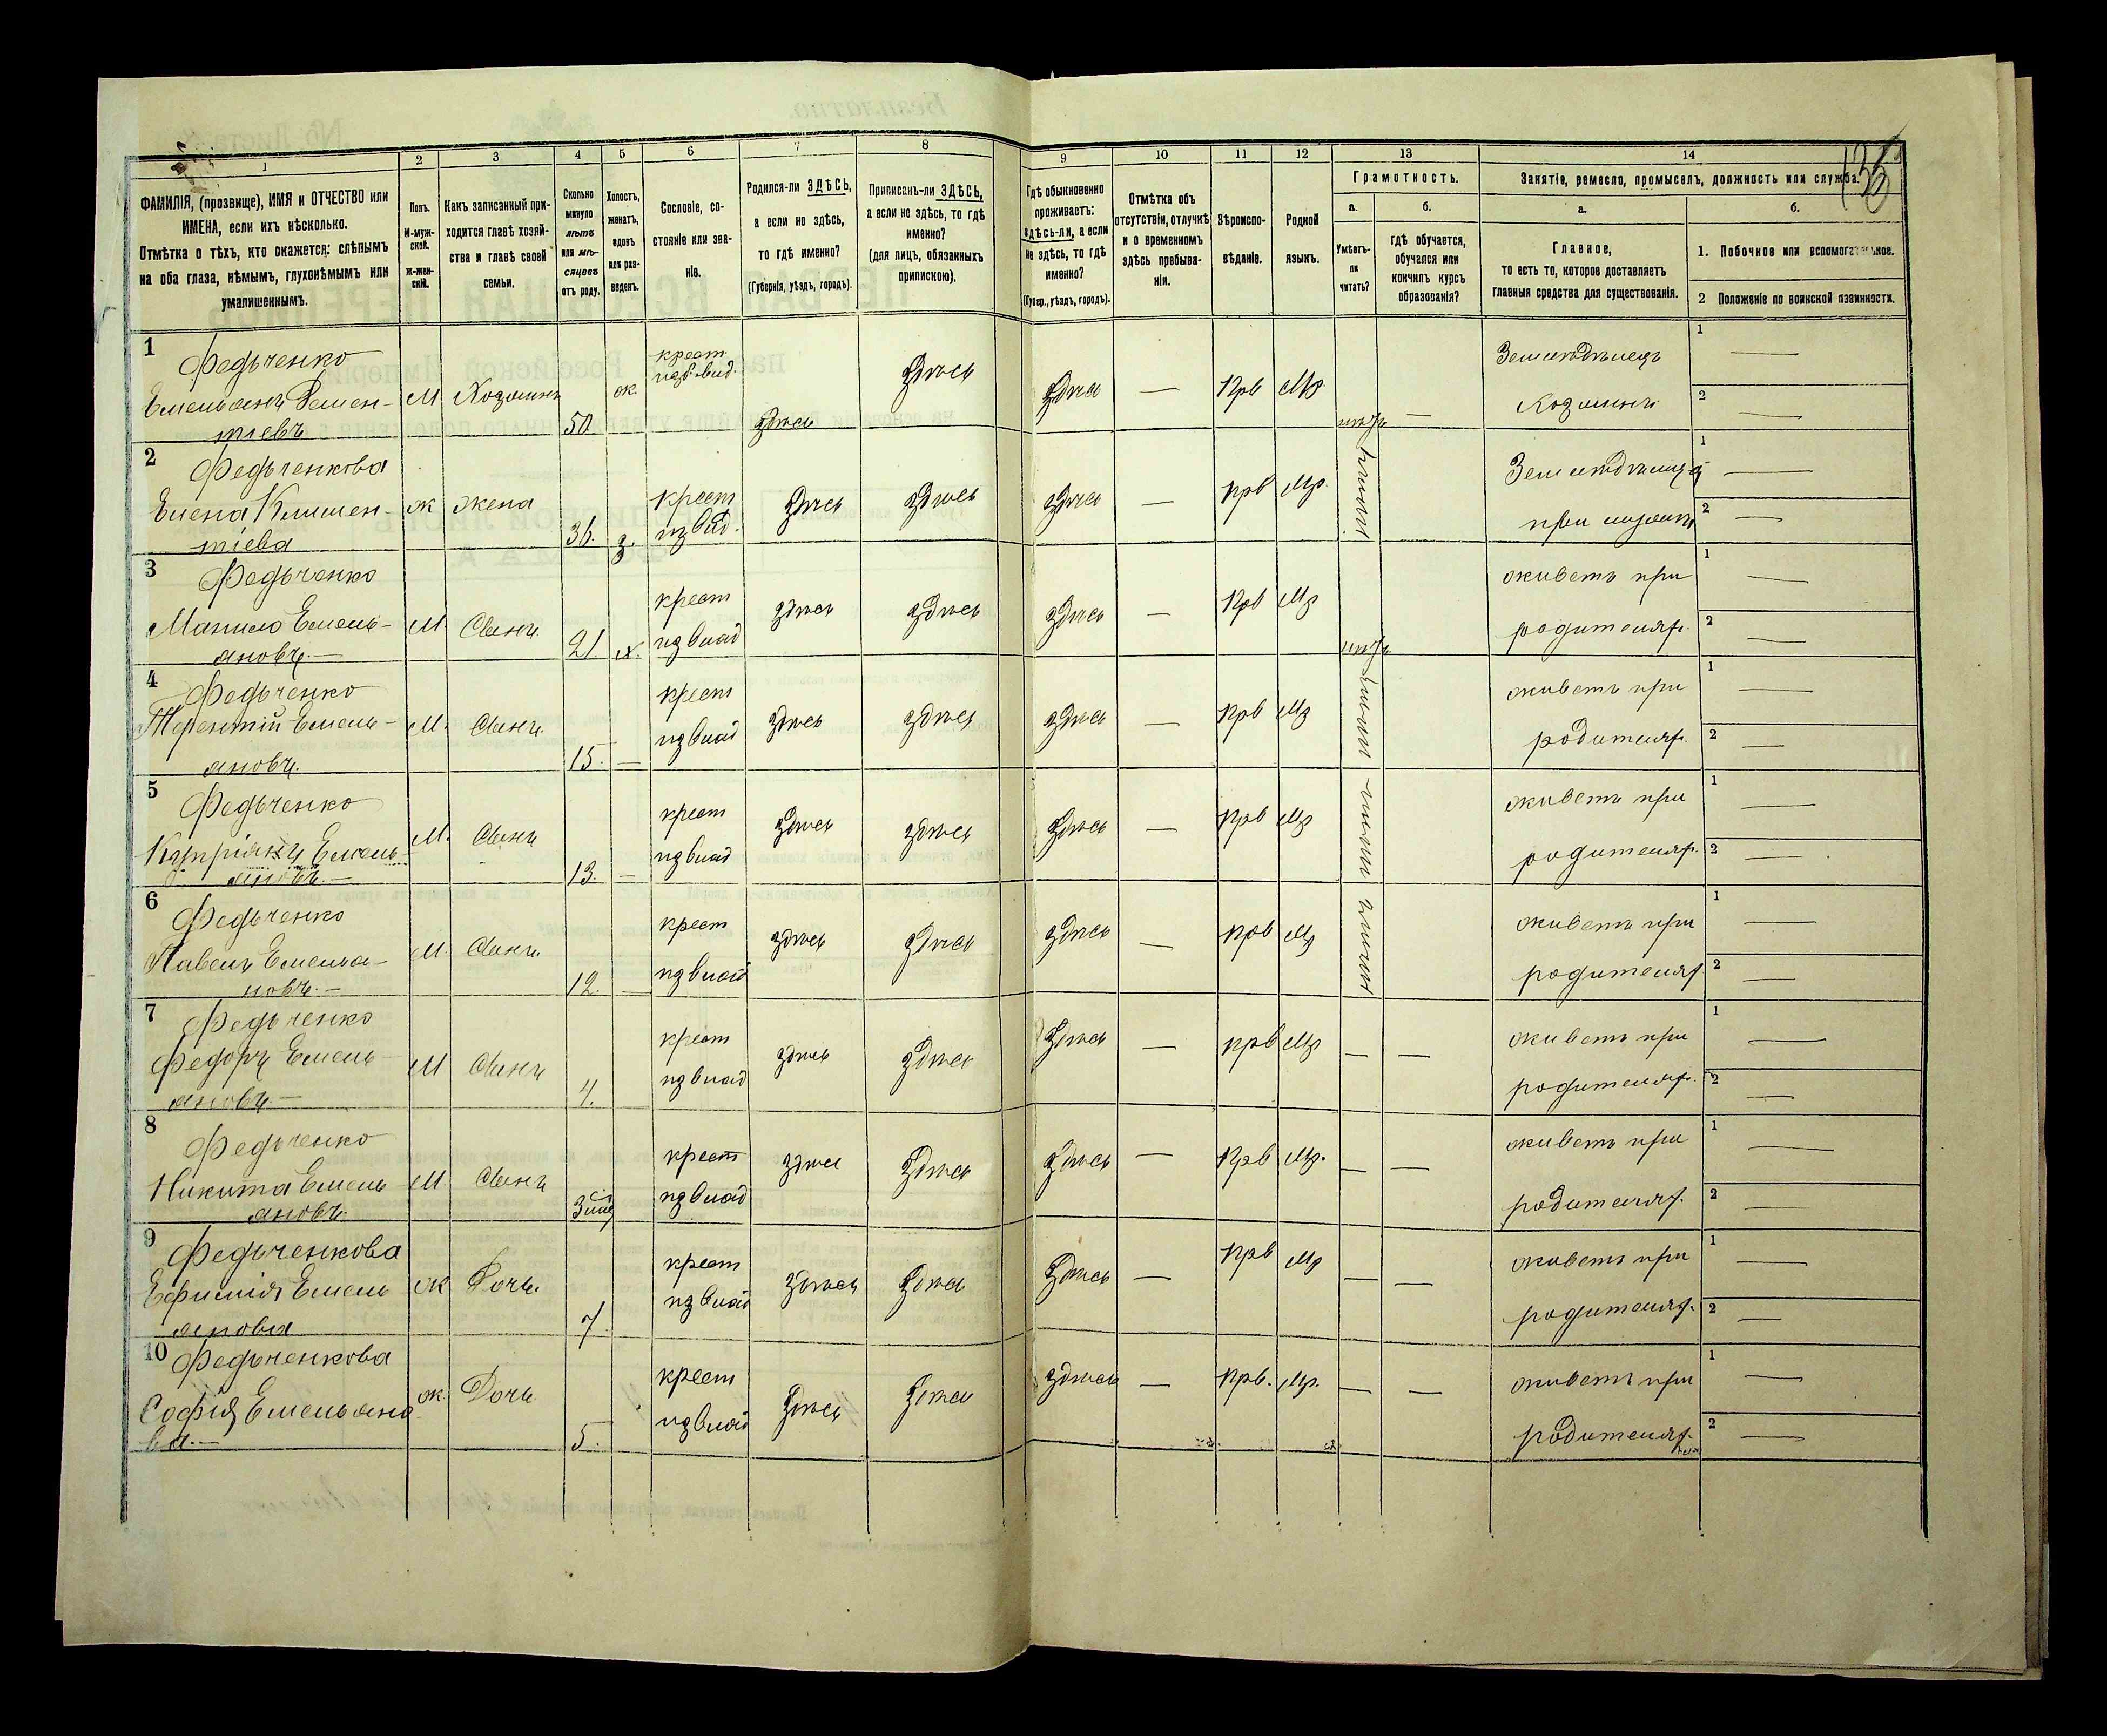 1 2 3 4 5 6 7 8 9 10 11 12 13 14
ФАМИЛІЯ, (прозвище), ИМЯ и ОТЧЕСТВО или
ИМЕНА, если ихъ нѣсколько.
Отмѣтка о тѣхъ, кто окажется: слѣпымъ
на оба глаза, нѣмымъ, глухонѣмымъ или
умалишеннымъ.
Полъ.
М-муж-
ской.
ж-жен-
скій.
Какъ записанный при-
ходится главѣ хозяй-
ства и главѣ своей
семьи.
Сколько
минуло
лѣтъ
или мѣ-
сяцевъ
отъ роду.
Холостъ,
женатъ,
вдовъ
или раз-
веденъ.
Сословіе, со-
стояніе или зва-
ніе.
Родился-ли ЗДѢСЬ,
а если не здѣсь,
то гдѣ именно?
(Губернія, уѣздъ, городъ).
Приписанъ-ли ЗДѢСЬ,
а если не здѣсь, то гдѣ
именно?
(для лицъ, обязанныхъ
припискою).
Гдѣ обыкновенно
проживаетъ:
здѣсь-ли, а если
не здѣсь, то гдѣ
именно?
(Губер., уѣздъ, городъ).
Отмѣтка объ
отсутствіи, отлучкѣ
и о временномъ
здѣсь пребыва-
ніи.
Вѣроиспо-
вѣданіе.
Родной
языкъ.
Грамотность.
а. б.
Умѣетъ-
ли
читать?
гдѣ обучается,
обучался или
кончилъ курсъ
образованія?
Занятіе, ремесло, промыселъ, должность или служба.
а. б.
Главное,
то есть то, которое доставляетъ
главныя средства для существованія.
1. Побочное или вспомогательное.
2 Положеніе по воинской повинности.
1
Федьченко
М. Хозяинъ 50 ж. крест здѣсь здѣсь
здѣсь — Прв Мр нѣтъ — Земледѣлецъ
Хозяинъ
1 —
2 —
2
Федьченкова
Елена Климен-
тіева
ж жена 36. з. крест здѣсь здѣсь
здѣсь — прв Мр.
при мужѣ
1 —
2 —
3
Федьченко
Емель-
яновъ. —
М Сынъ 21. х. крест
из влад здѣсь здѣсь
здѣсь — Прв Мр нѣтъ живетъ при
родителях.
1 —
2 —
4
Федьченко
Терентій Емель-
яновъ.
М. Сынъ. 15. — крест
из влад здѣсь здѣсь
здѣсь — Прв Мр живетъ при
родителях.
1 —
2 —
5
Федьченко
Емель-
яновъ. —
М. Сынъ 13. — крест
из влад здѣсь здѣсь
здѣсь — прв Мр живетъ при
родителях.
1 —
2 —
6
Федьченко
Павелъ Емелья-
новъ. —
М. Сынъ. 12. — крест
из влад здѣсь здѣсь
здѣсь — прв Мр живетъ при
родителях
1 —
2 —
7
Федьченко
Федоръ Емель-
яновъ. —
М Сынъ 4. — крест
из влад здѣсь здѣсь
здѣсь — прв Мр — — живетъ при
родителях.
1 —
2 —
8
Федьченко
Никита Емель
яновъ.
М Сынъ крест
из влад здѣсь здѣсь
здѣсь — Прв Мр. — — живетъ при
родителях.
1 —
2 —
9
Федьченкова
Ефимія Емель
янова
ж Дочь. 7 крест
из влад здѣсь здѣсь
здѣсь — Прв Мр — — живетъ при
родителях.
1 —
2 —
10
Федьченкова
Софія Емельяно
ва. —
ж. Дочь 5. крест
из влад здѣсь здѣсь
здѣсь — Прв. Мр. — — живетъ при
родителях.
1 —
2 —